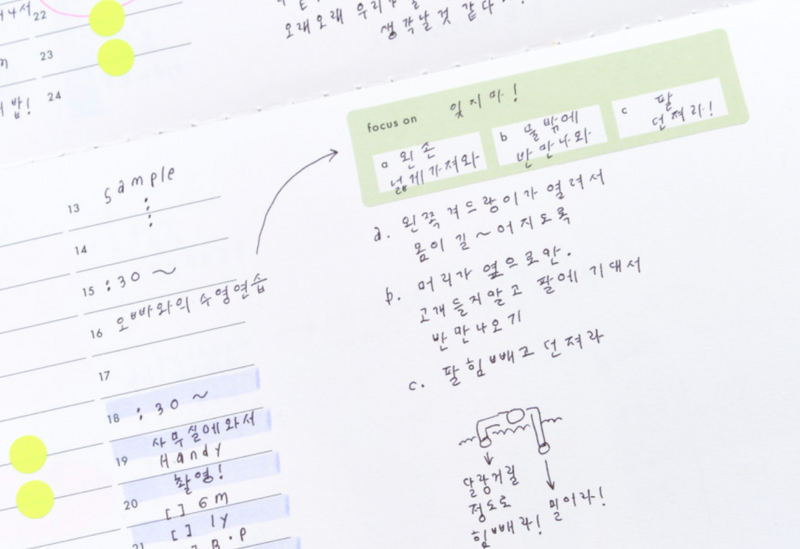 22
23
24
밥!
오래오래 우리
생각날것 같다
focus on 잊지마!
a 왼손
넓게가져와
b 물밖에
반만나와
c 팔
던져라!
13 Sample
14
15 :30 ~
16 오빠와의 수영연습
17
18 :30 ~
사무실에와서
19 Handy
촬영!
20 [ ] 6m
21 [ ] ly
B.P
a. 왼쪽겨드랑이가 열려서
몸이 길~어지도록
b. 머리가 옆으로만.
고개들지말고 팔에 기대서
반만나오기
c. 팔힘빼고 던져라
달랑거릴
정도로
힘빼라!
밀어라!